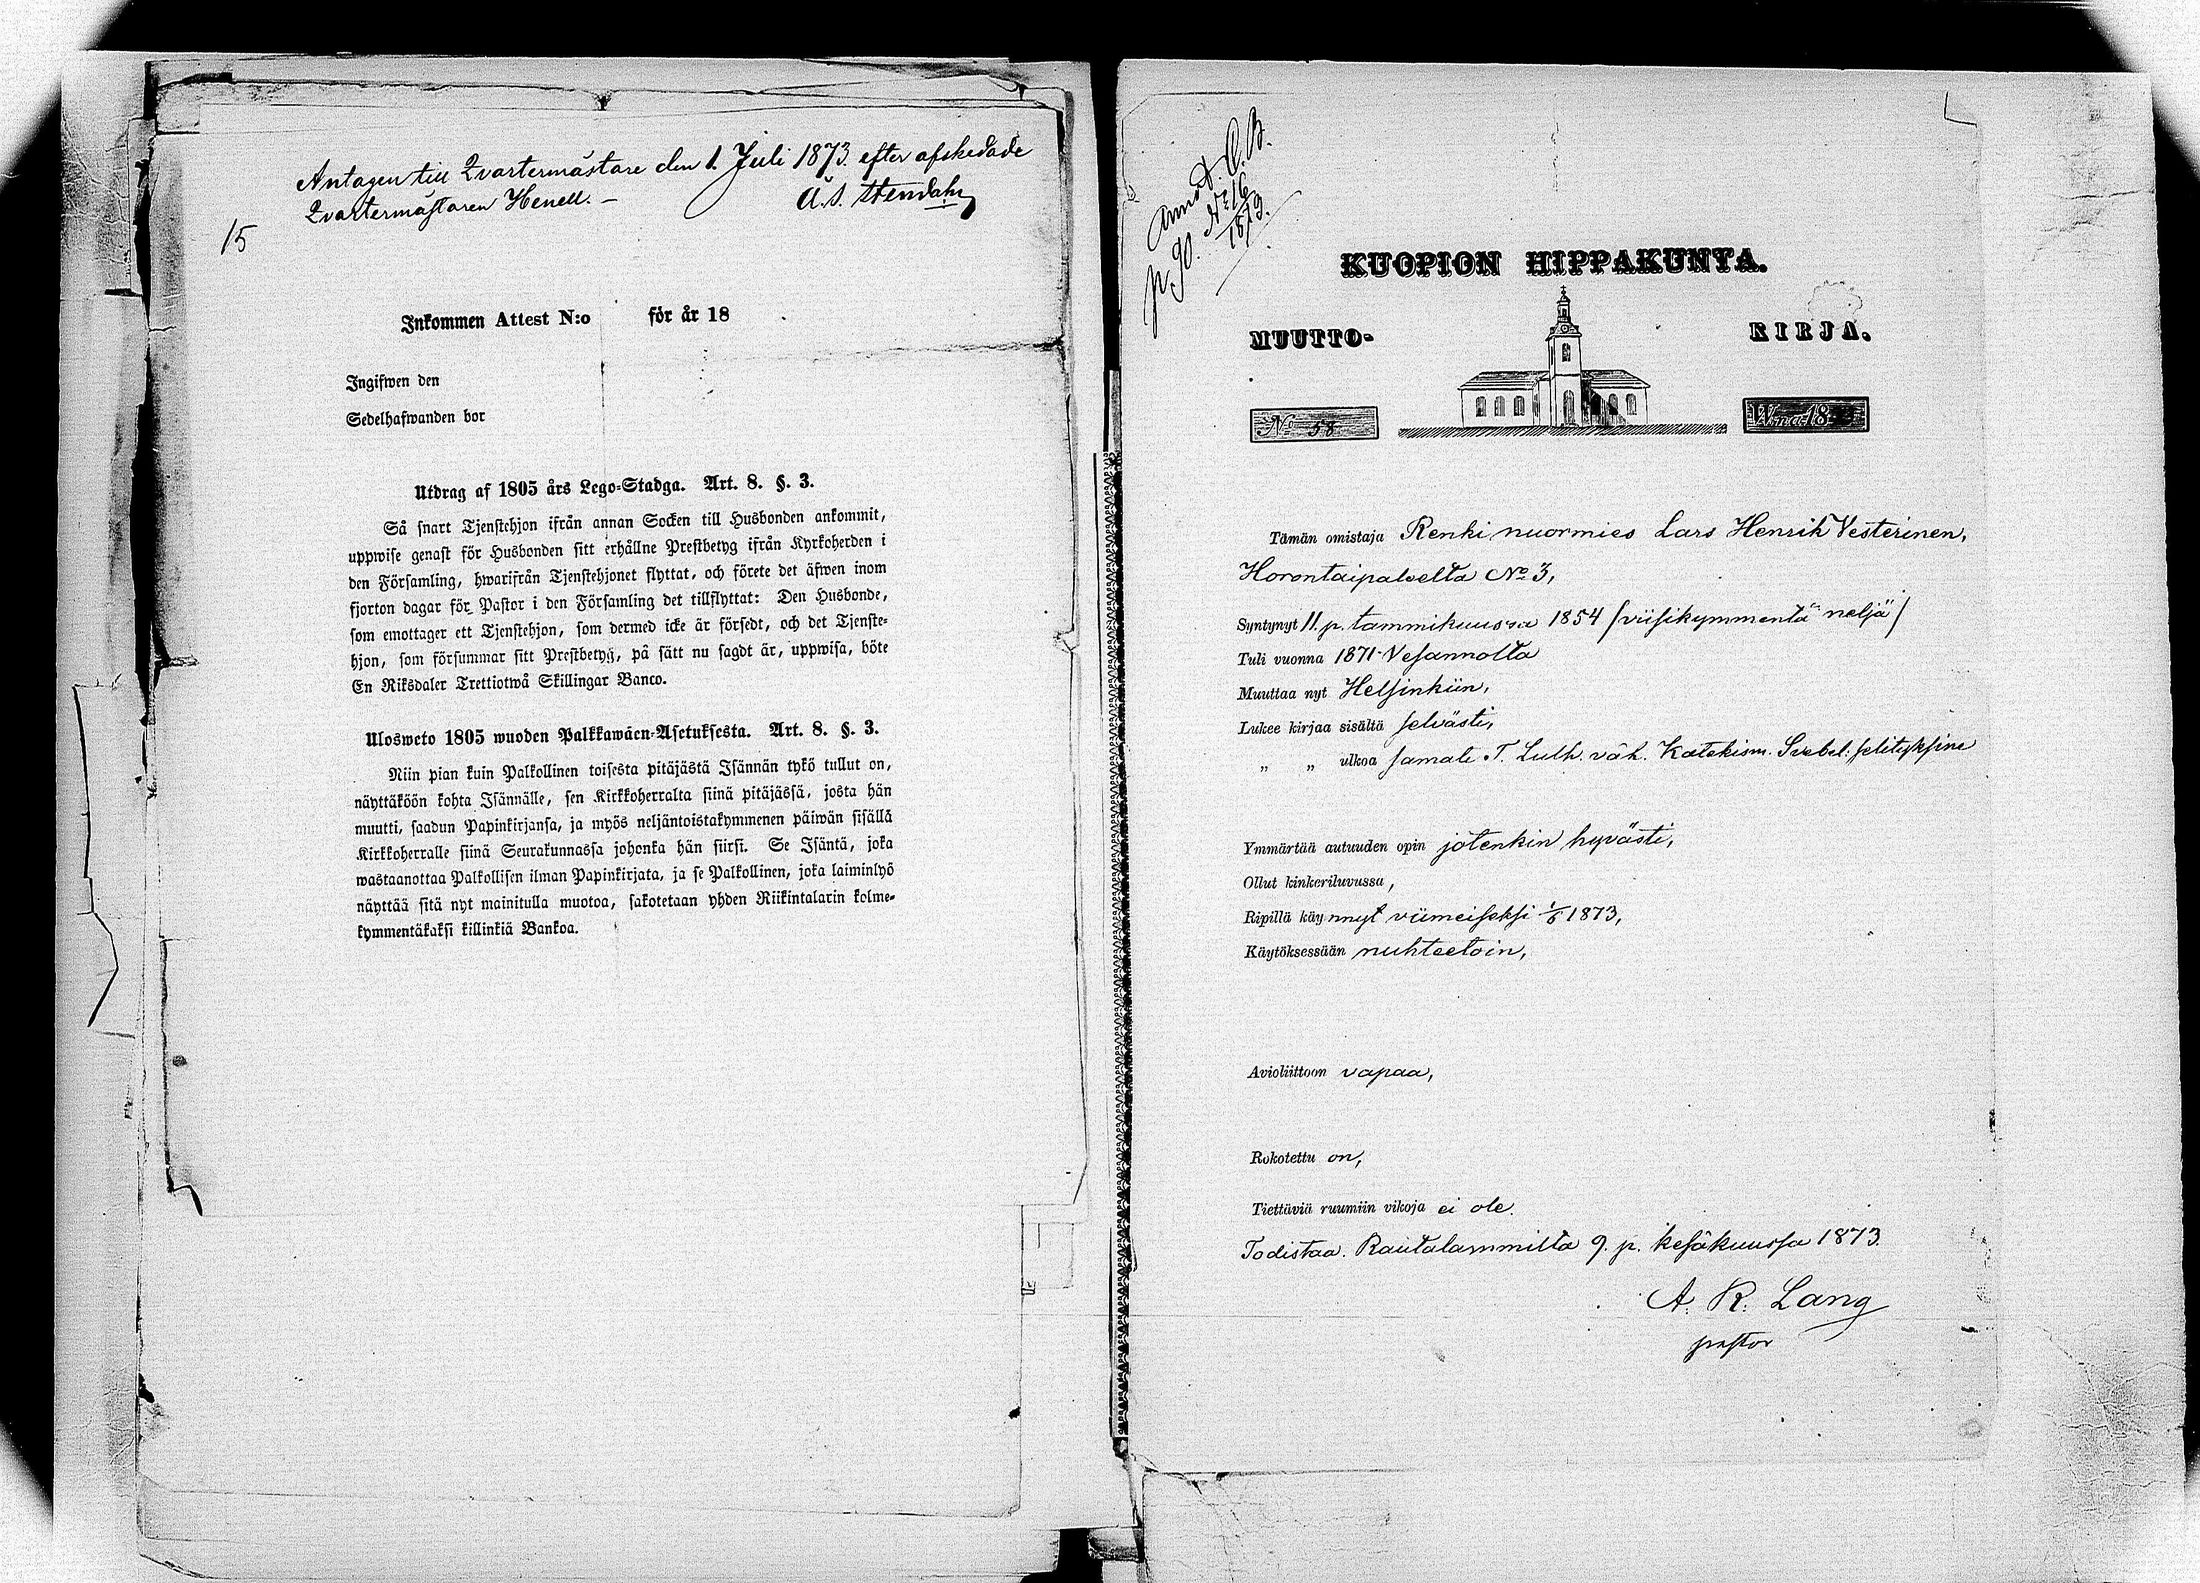 Antagen till Qvartermästare den 1. Juli 1873. efter afskedade
Qvartermästaren Henell. –
A. S. Stendahl
15
Inkommen Attest N:o för år 18
Ingifwen den
Sedelhafwanden bor
Utdrag af 1805 års Lego-Stadga. Art. 8. §. 3.
Så snart Tjenstehjon ifrån annan Socken till Husbonden ankommit,
uppwise genast för Husbonden sitt erhållne Prestbetyg ifrån Kyrkoherden i
den Församling, hwarifrån Tjenstehjonet flyttat, och förete det äfwen inom
fjorton dagar för Pastor i den Församling det tillflyttat: Den Husbonde,
som emottager ett Tjenstehjon, som dermed icke är försedt, och det Tjenste-
hjon, som försummar sitt Prestbetyg, på sätt nu sagdt är, uppwisa, böte
En Riksdaler Trettiotwå Skillingar Banco.
Ulosweto 1805 wuoden Palkkawäen-Asetuksesta. Art. 8. §. 3.
Niin pian kuin Palkollinen toisesta pitäjästä Isännän tykö tullut on,
näyttäköön kohta Isännälle, sen Kirkkoherralta siinä pitäjässä, josta hän
muutti, saadun Papinkirjansa, ja myös neljäntoistakymmenen päiwän sisällä
Kirkkoherralle siinä Seurakunnassa johonka hän siirsi. Se Isäntä, joka
wastaanottaa Palkollisen ilman Papinkirjata, ja se Palkollinen, joka laiminlyö
näyttää sitä nyt mainitulla muotoa, sakotetaan yhden Riikintalarin kolme-
kymmentäkaksi killinkiä Bankoa.
Annot. O. B.
p. 90. N:o 16
1873.
KUOPION HIPPAKUNTA.
MUUTTO- KIRJA.
No 58 W:na 18
Tämän omistaja Renki nuormies Lars Henrik Vesterinen,
Horontaipaleelta No 3,
Syntynyt 11. p. tammikuussa 1854 /viisikymmentä neljä/
Tuli vuonna 1871 Vesannolta
Muuttaa nyt Helsinkiin,
Lukee kirjaa sisältä selvästi,
„ „ ulkoa samate T. Luth. väh. Katekism. Svebel. selityksine
Ymmärtää autuuden opin jotenkin hyvästi,
Ollut kinkeriluvussa,
Ripillä käynnyt viimeiseksi 1/6 1873,
Käytöksessään nuhteetoin,
Avioliittoon vapaa,
Rokotettu on,
Tiettäviä ruumiin vikoja ei ole.
Todistaa. Rautalammilta 9. p. kesäkuussa 1873.
A. R. Lang
pastor